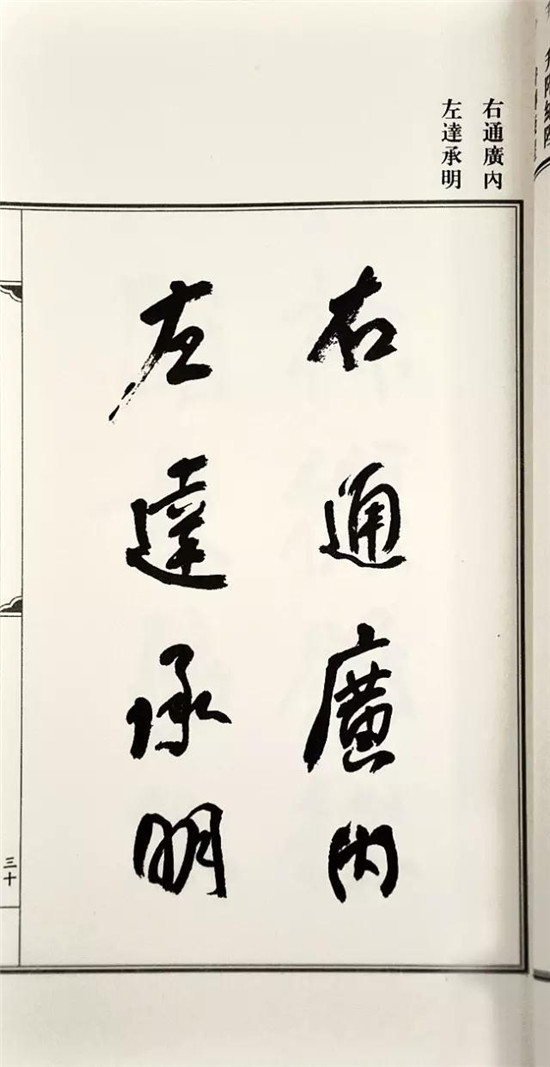 右通廣內
左達承明
右通廣內
左達承明
三十